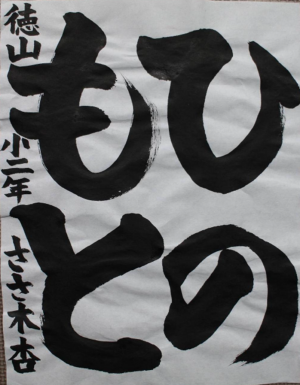 ひの
もと
徳山小二年ささ木杏